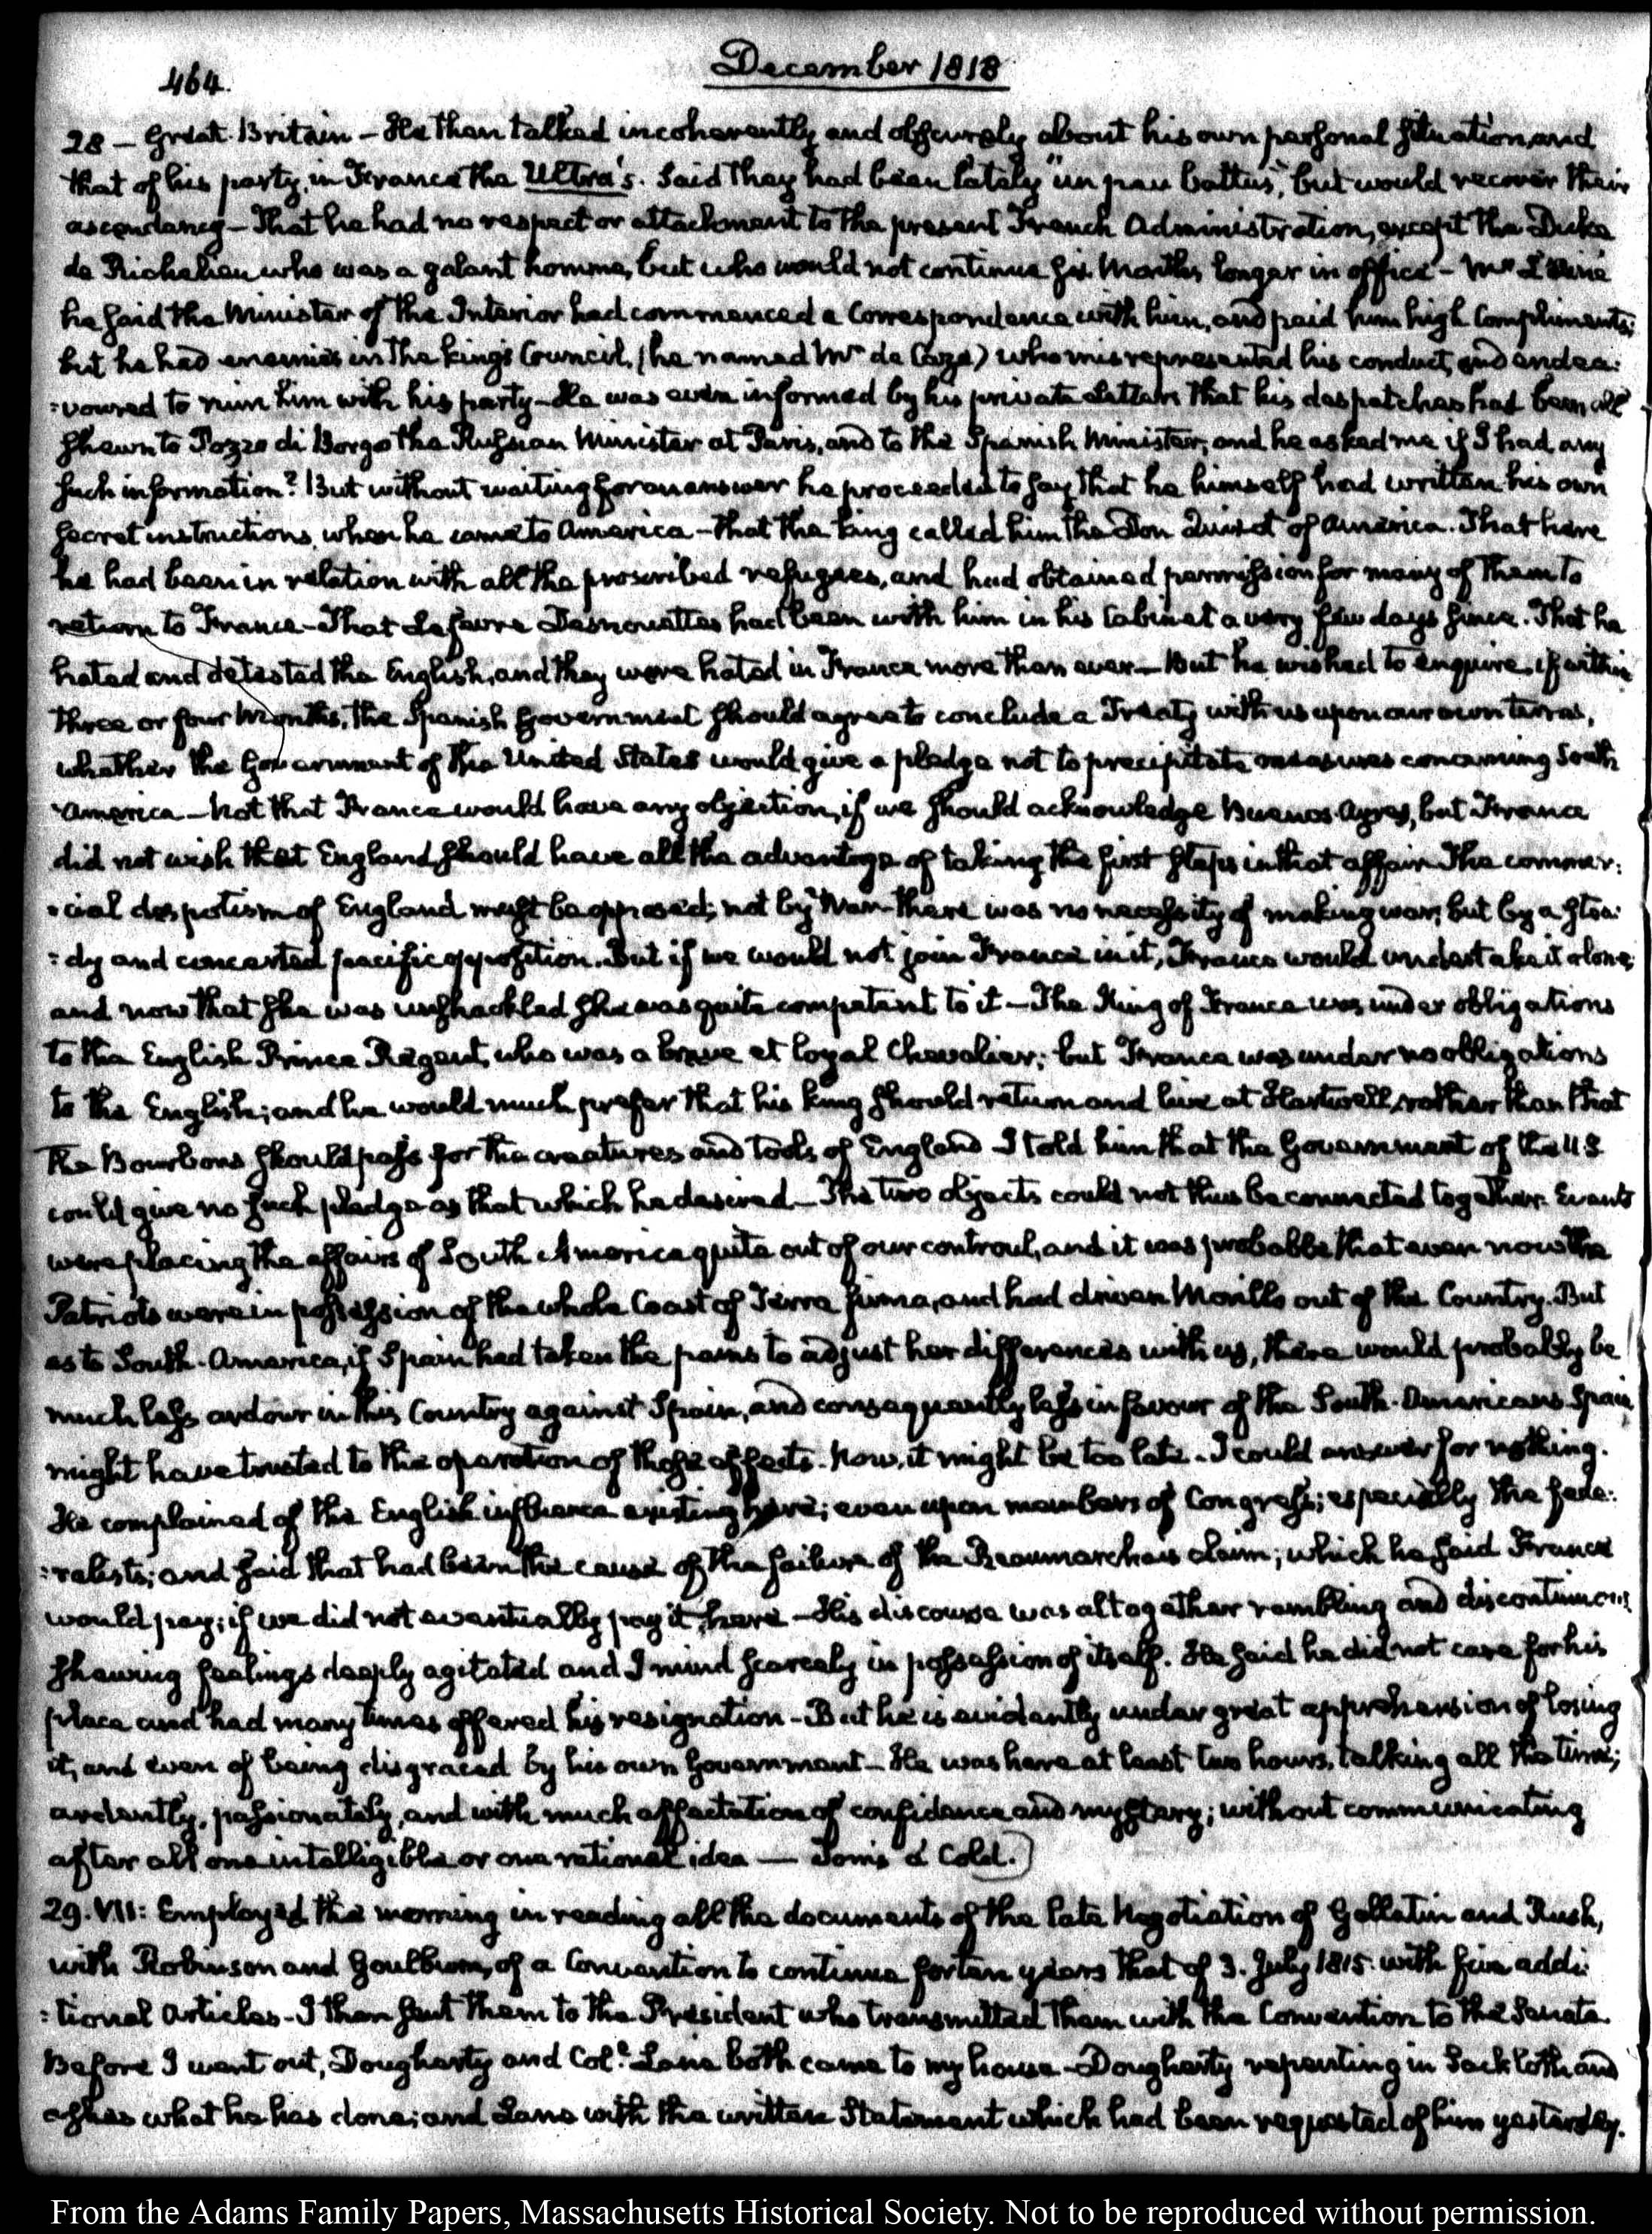 464.
December 1818
28 — Great Britain — He then talked incoherently and obscurely about his own personal situation, and
that of his party, in France the Ultra's. Said they had been lately "un peu battus", but would recover their
ascendancy — That he had no respect or attachment to the present French Administration, except the Duke
de Richelieu who was a galant homme, but who would not continue six Months longer in office — Mr Lainé
he said the Minister of the Interior had commenced a Correspondence with him, and paid him high Compliments;
but he had enemies in the king's Council, (he named Mr de Caze) who misrepresented his conduct, and endea:
:voured to ruin him with his party — He was even informed by his private Letters that his despatches had been all
shewn to Pozzo di Borgo the Russian Minister at Paris, and to the Spanish Minister, and he asked me if I had any
such information? But without waiting for an answer he proceeded to say that he himself had written his own
secret instructions, when he came to America — that the king called him the Don Quixot of America. That here
he had been in relation with all the proscribed refugees, and had obtained permission for many of them to
return to France — That Lefevre Desnouettes had been with him in his Cabinet a very few days since. That he
hated and detested the English, and they were hated in France more than ever — But he wished to enquire, if within
three or four Months, the Spanish Government should agree to conclude a Treaty with us upon our own terms,
whether the Government of the United States would give a pledge not to precipitate measures concerning South
America — Not that France would have any objection, if we should acknowledge Buenos Ayres, but France
did not wish that England should have all the advantage of taking the first steps in that affair. The commer:
:cial despotism of England must be opposed; not by War — there was no necessity of making war; but by a stea:
:dy and concerted pacific opposition. But if we would not join France in it, France would undertake it alone;
and now that she was unshackled she was quite competent to it — The King of France was under obligations
to the English Prince Regent, who was a brave et loyal Chevalier; but France was under no obligations
to the English; and he would much prefer that his king should return and live at Hartwell, rather than that
the Bourbons should pass for the creatures and tools of England. I told him that the Government of the U.S.
could give no such pledge as that which he desired — The two objects could not thus be connected together. Events
were placing the affairs of South America quite out of our controul, and it was probable that even now the
Patriots were in possession of the whole Coast of Terra firma, and had driven Morillo out of the Country. But
as to South-America, if Spain had taken the pains to adjust her differences with us, there would probably be
much less ardour in this Country against Spain, and consequently less in favour of the South-Americans. Spain
might have trusted to the operation of those effects. Now, it might be too late. I could answer for nothing.
He complained of the English influence existing here; even upon members of Congress; especially the fede:
:ralists; and said that had been the cause of the failure of the Beaumarchais claim; which he said France
would pay; if we did not eventually pay it, here — His discourse was altogether rambling and discontinuous
shewing feelings deeply agitated and a mind scarcely in possession of itself. He said he did not care for his
place and had many times offered his resignation — But he is evidently under great apprehension of losing
it, and even of being disgraced by his own Government — He was here at least two hours, talking all the time;
ardently, passionately, and with much affectation of confidence and mystery; without communicating
after all one intelligible or one rational idea — Tom's a Cold.)
29. VII: Employed the morning in reading all the documents of the late Negotiation of Gallatin and Rush,
with Robinson and Goulburn, of a Convention to continue for ten years that of 3. July 1815. with five addi:
:tional Articles — I then sent them to the President who transmitted them with the Convention to the Senate.
Before I went out, Dougherty and Col.l Lane both came to my house — Dougherty repenting in Sackcloth and
ashes what he has done; and Lane with the written Statement which had been requested of him yesterday.
From the Adams Family Papers, Massachusetts Historical Society. Not to be reproduced without permission.